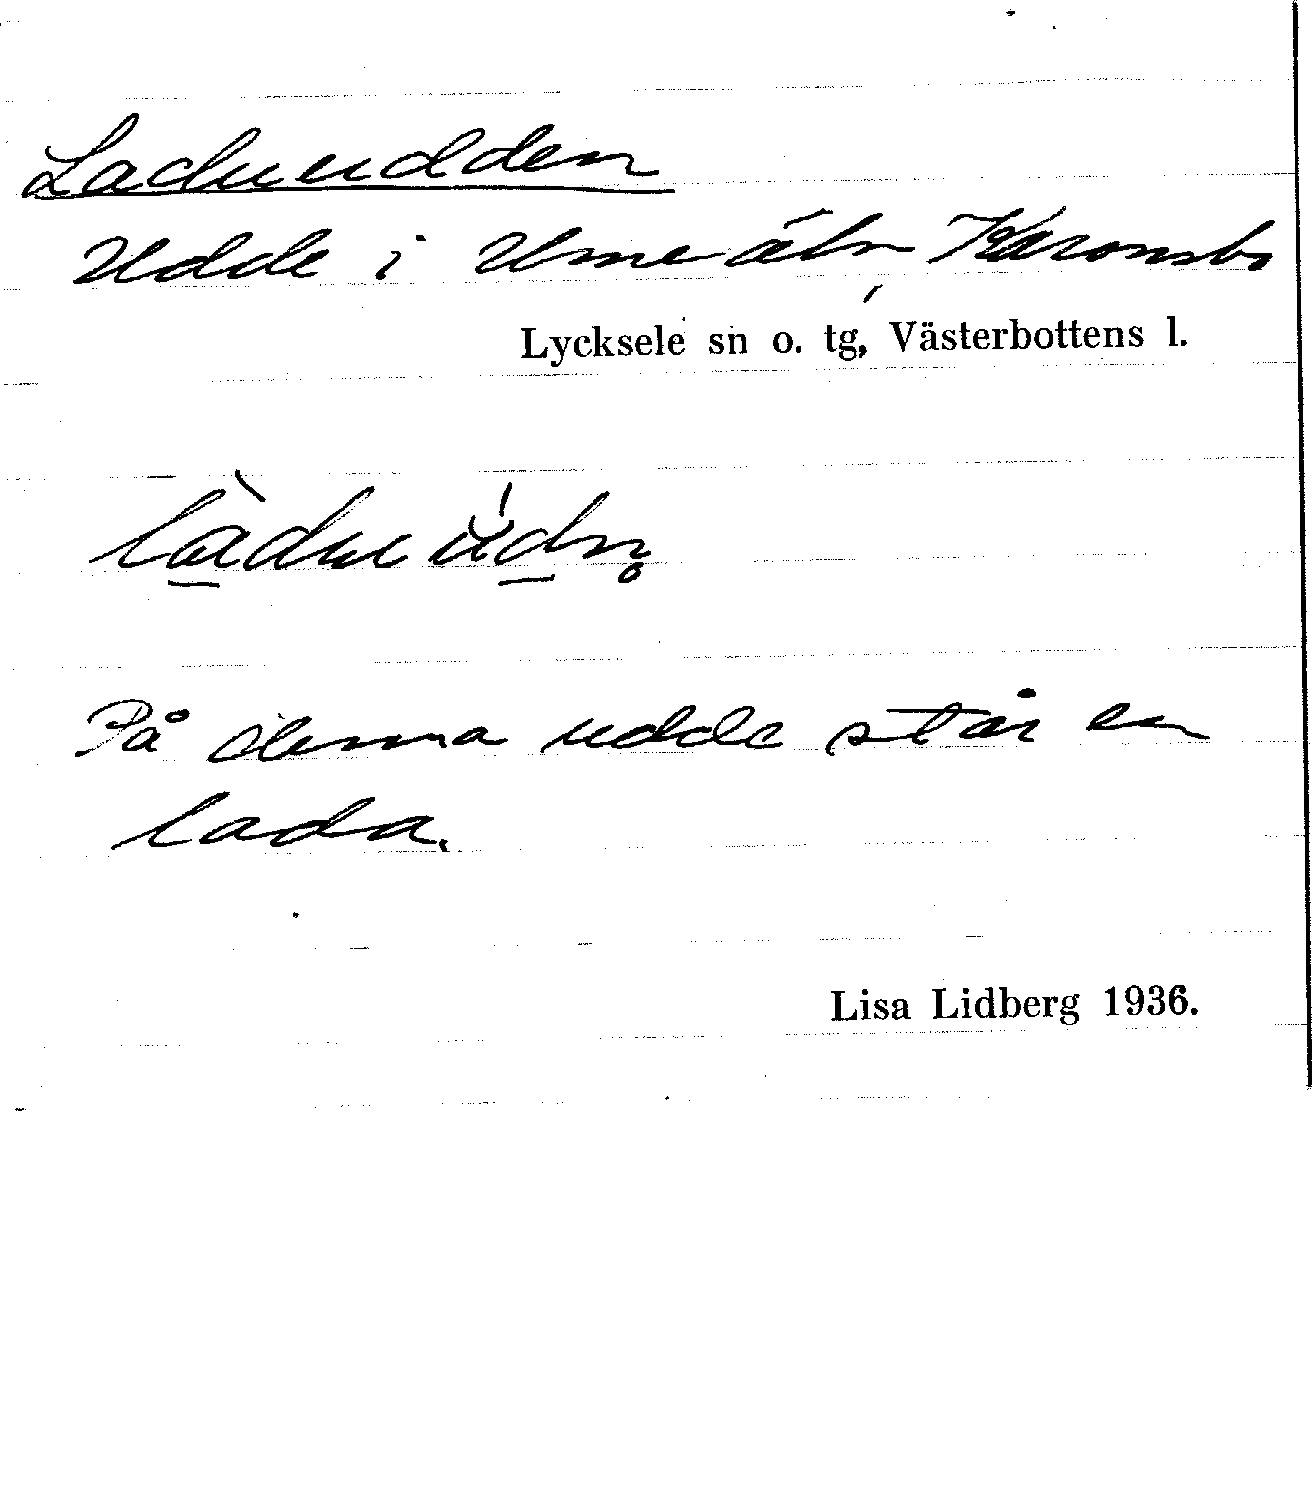 Laduudden
Udde i Umeälv, Kåronsbo
Lycksele sn o. tg, Västerbottens l.
På denna udde står en
lada.
Lisa Lidberg 1936.